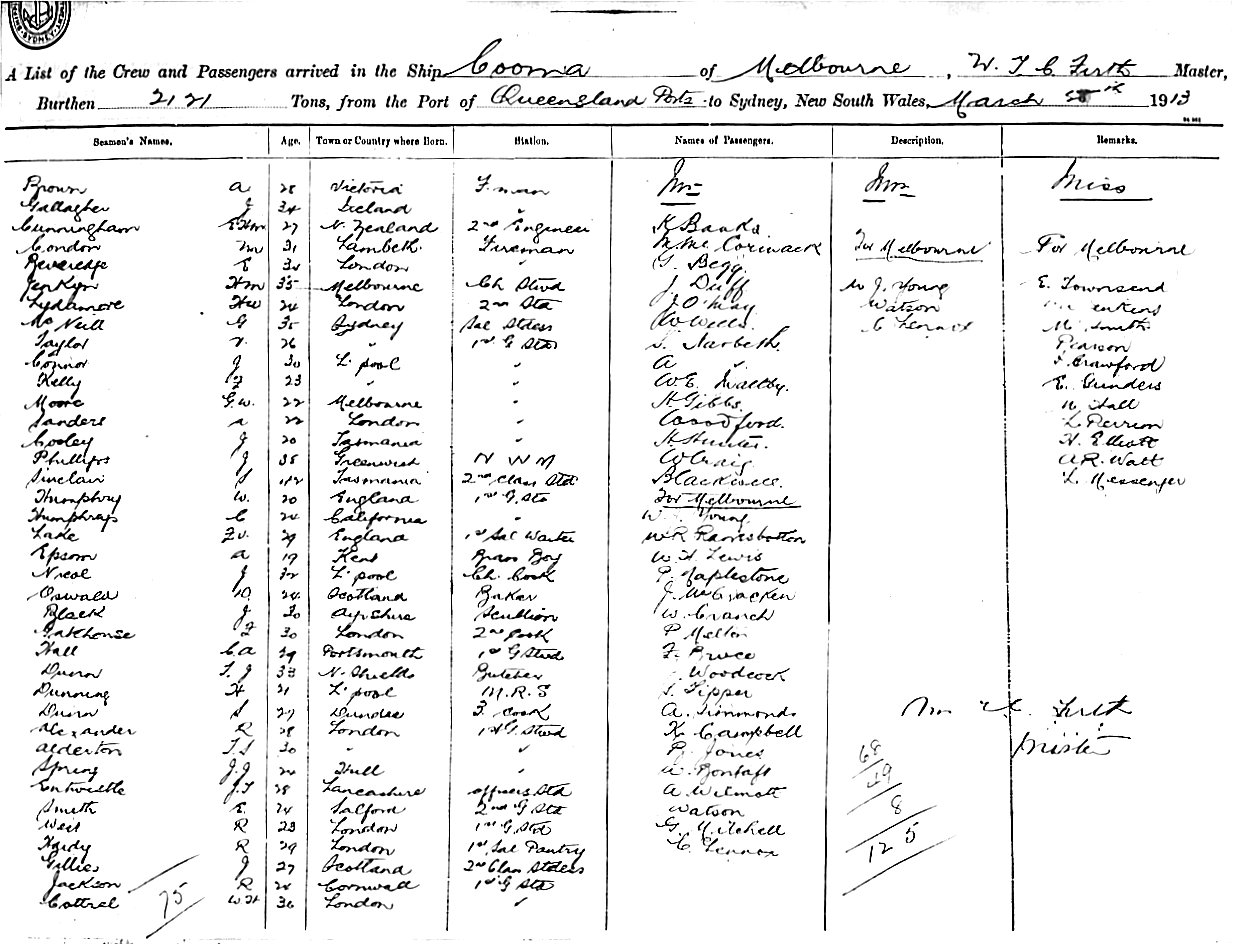 A List of the Crew and Passengers arrived in the Ship Cooma of Melbourne, W. T. C. Firth Master,
Burthen 2121 Tons, from the Port of Queensland Ports to Sydney, New South Wales, March 1913
Seamen's Names. Age. Town or Country where Born. Station. Names of Passengers. Description. Remarks.
Brown A 28 Victoria Fireman Mr Mrs Miss
Gallagher J 34 Ireland "
Cunningham 27 N. Zealand 2nd Engineer K Banks
Condon M 31 Lambeth Fireman McCormack For Melbourne For Melbourne
Reveredge E London " G. Begg
Jenkyn Hm 35 Melbourne Ch Stwd J Duff W J. Young E. Townsend
Lydamore 24 London 2nd Std J O'May Watson
Mc Neill G 35 Sydney Sal Stdess W Wells C Lennox M Smith
Taylor 26 " 1st G Std S. Narbeth Pearson
Connor J 30 L'pool " A " Crawford
Kelly F 23 " " W E. E. Gunders
Moore G. W. 22 Melbourne " H Gibbs Hall
Sanders A 22 London " Woodford. L Perrion
Cooley J 20 Tasmania " H Hunter H. Elliott
Phillips J 35 Greenwich N W M W Craig A R. Watt
Sinclair S 42 Tasmania 2nd Class Std L. Messenger
Humphry W. 20 England 1st G. Std For Melbourne
Humphrys C 24 California " W J Young
Lake 29 England 1st Sal Waiter W R Ramsbotton
Epsom A 19 Kent Brass Boy W H Lewis
Nicol J 32 L'pool Ch. Cook P. Maplestone
Oswald 24 Scotland Baker J. McCracken
Black J 30 Ayrshire Scullion W. Cranch
Gatehouse F 30 London 2nd Cook P Melton
Hall C. A 29 Portsmouth 1st G Stwd F. Bruce
Dunn T. J 33 N. Shields Butcher Woodcock
Dunning H 21 L'pool M. R. S S. Tipper
Dunn S 27 Dundee 3. Cook A. Simmonds Mrs Firth
Alexander R 28 London 1st G. Stwd K. Campbell
Alderton T. S 30 " " P. Jones 68
Spring J. J 24 Hull " 49
Entwistle J. T 28 Lancashire officers Std A Wilmott
Smith E. 24 Salford 2nd G Std Watson 8
Weir R 23 London 1st G. Std G. Mitchell
Hardy R 29 London 1st Sal Pantry C. Lennox 125
Gillies J 27 Scotland 2nd Class Stdess
Jackson R 24 Cornwall 1st G Std
Cottrel 75 W H 36 London "